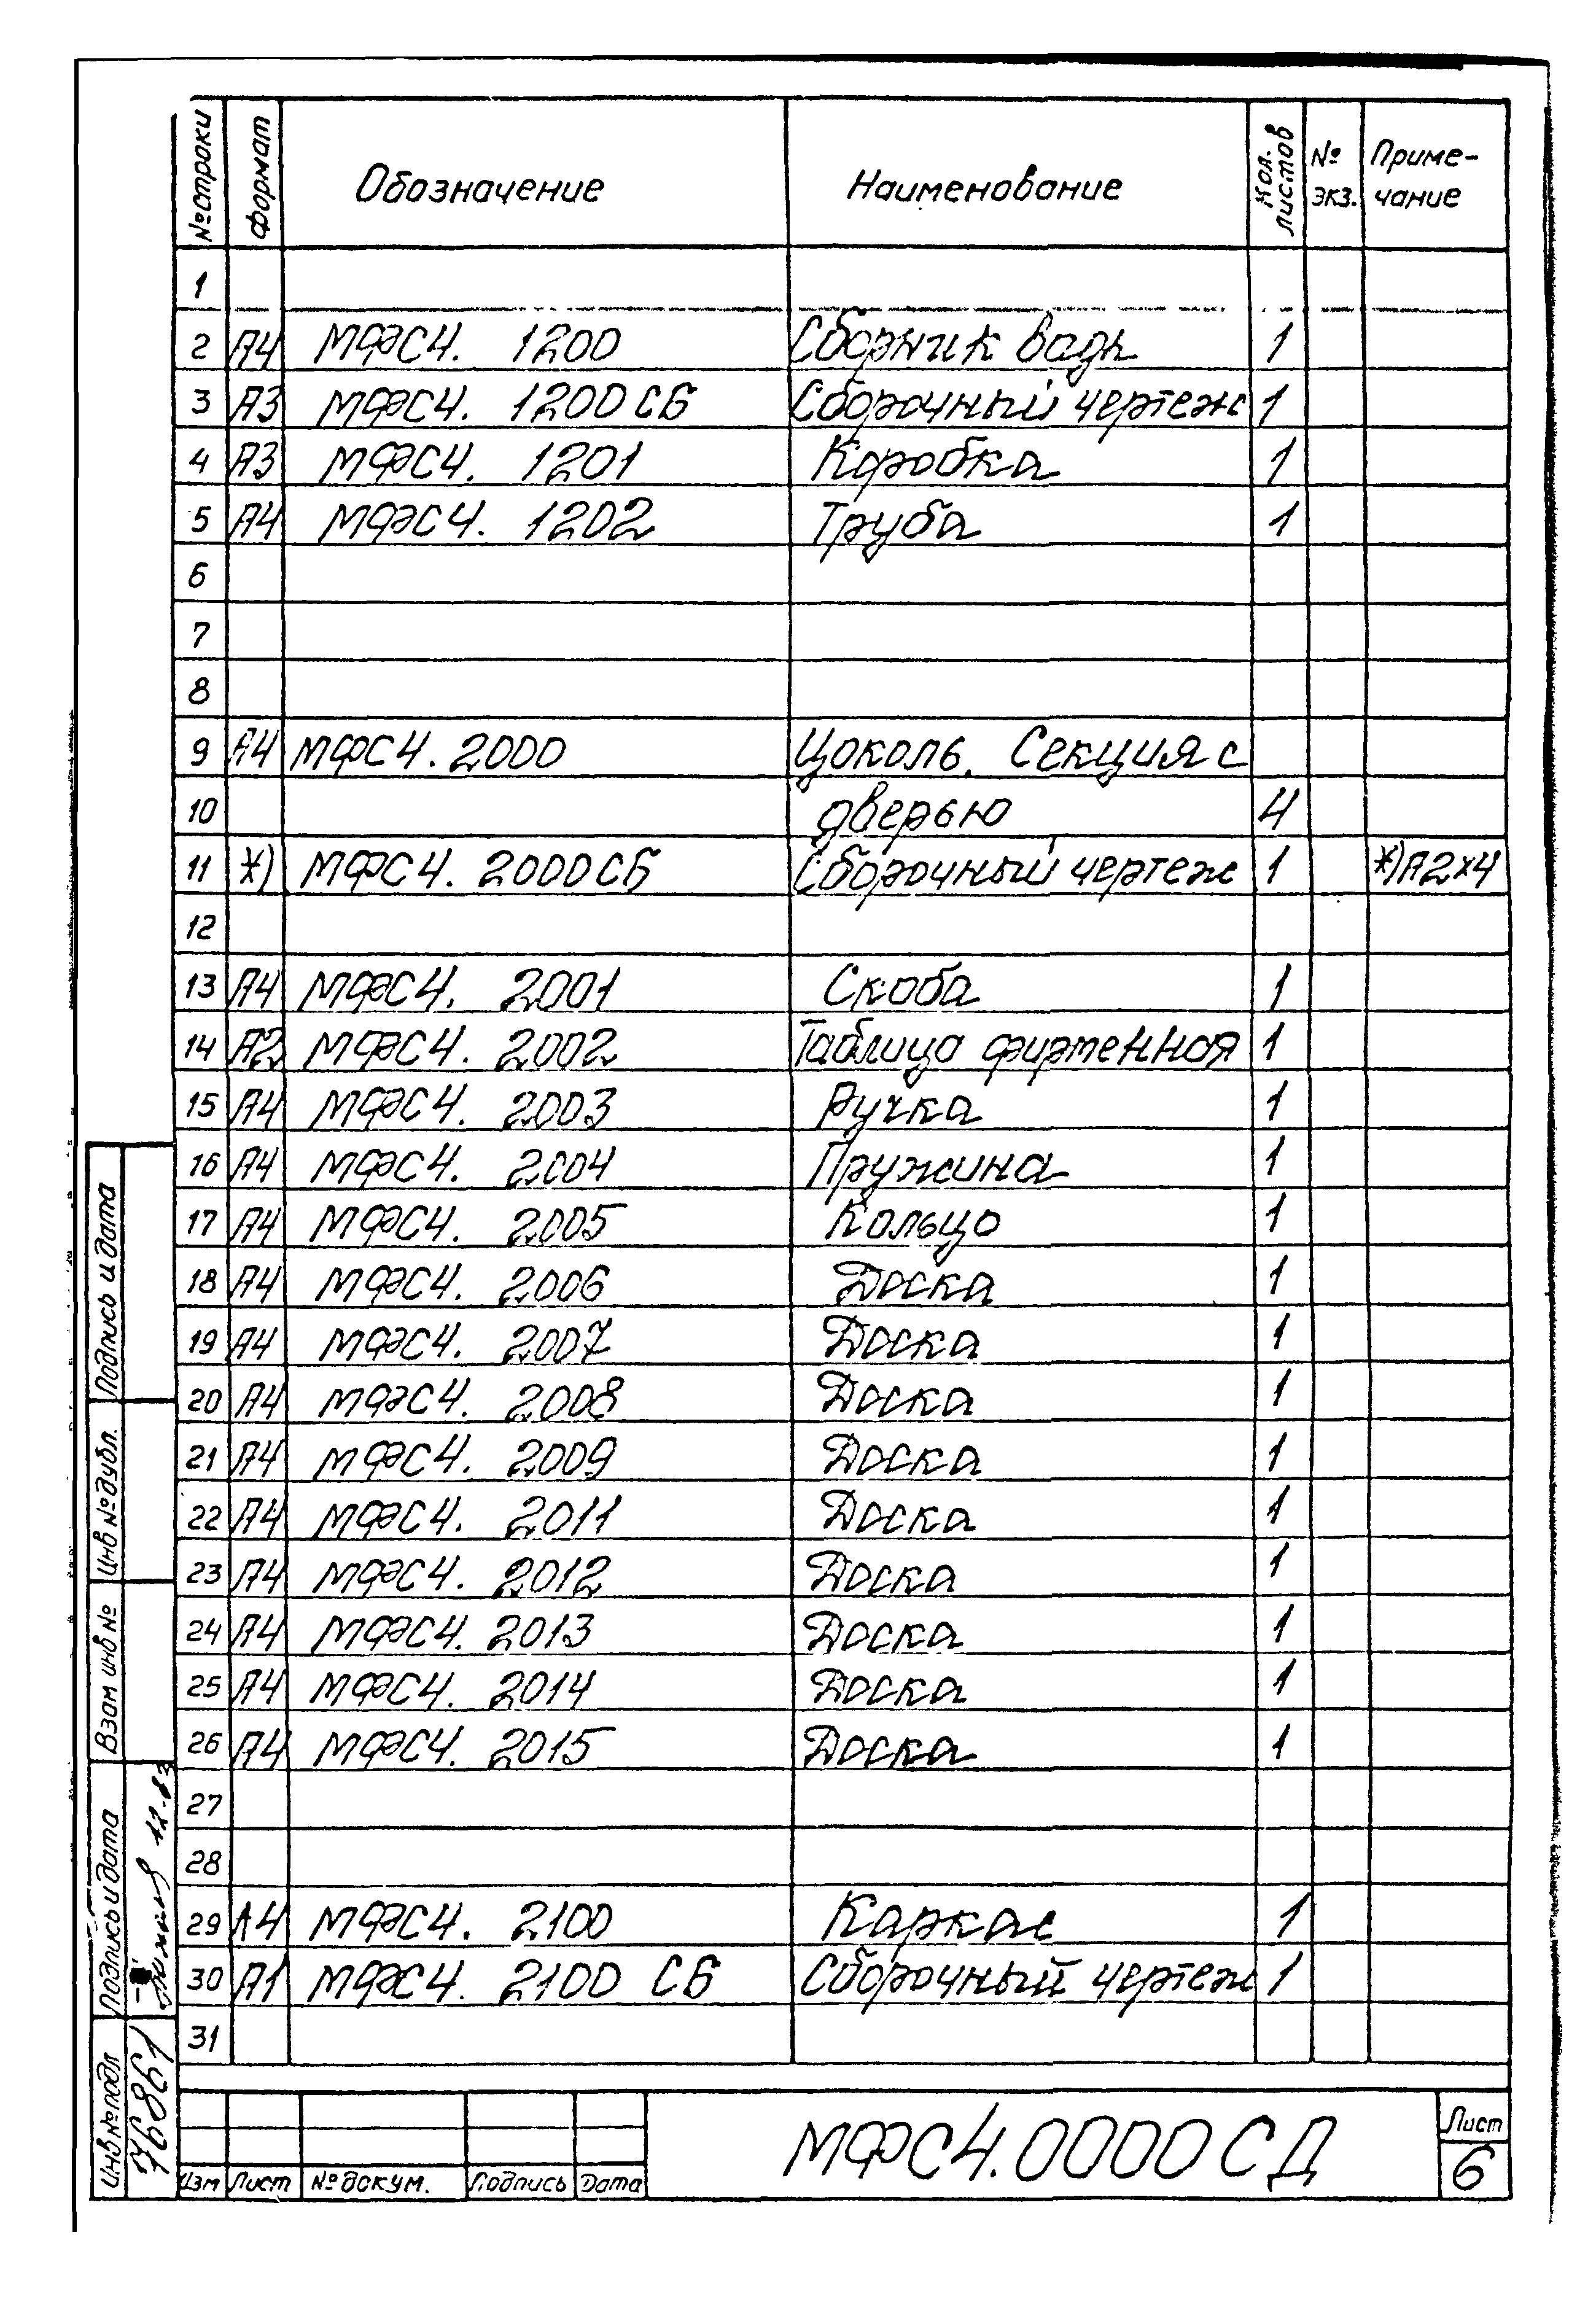 № строки Формат Обозначение Наименование Кол. листов № экз. Приме-чание
1
2 А4 МФС4. 1200 Сборник воды 1
3 А3 МФС4. 1200СБ Сборочный чертеж 1
4 А3 МФС4. 1201 Коробка 1
5 А4 МФС4. 1202 Труба 1
6
7
8
9 А4 МФС4. 2000 Цоколь. Секция с
10 дверью 4
11 *) МФС4. 2000СБ Сборочный чертеж 1 *)А2х4
12
13 А4 МФС4. 2001 Скоба 1
14 А2 МФС4. 2002 Таблица фирменная 1
15 А4 МФС4. 2003 Ручка 1
16 А4 МФС4. 2004 Пружина 1
17 А4 МФС4. 2005 Кольцо 1
18 А4 МФС4. 2006 Доска 1
19 А4 МФС4. 2007 Доска 1
20 А4 МФС4. 2008 Доска 1
21 А4 МФС4. 2009 Доска 1
22 А4 МФС4. 2011 Доска 1
23 А4 МФС4. 2012 Доска 1
24 А4 МФС4. 2013 Доска 1
25 А4 МФС4. 2014 Доска 1
26 А4 МФС4. 2015 Доска 1
27
28
29 А4 МФС4. 2100 Каркас 1
30 А1 МФС4. 2100 СБ Сборочный чертеж 1
31
Подпись и дата
Инв № дубл.
Взам инв №
Подпись и дата 12-83
Инв № подл 76861
Изм Лист № докум. Подпись Дата
МФС4.0000 СД
Лист
6